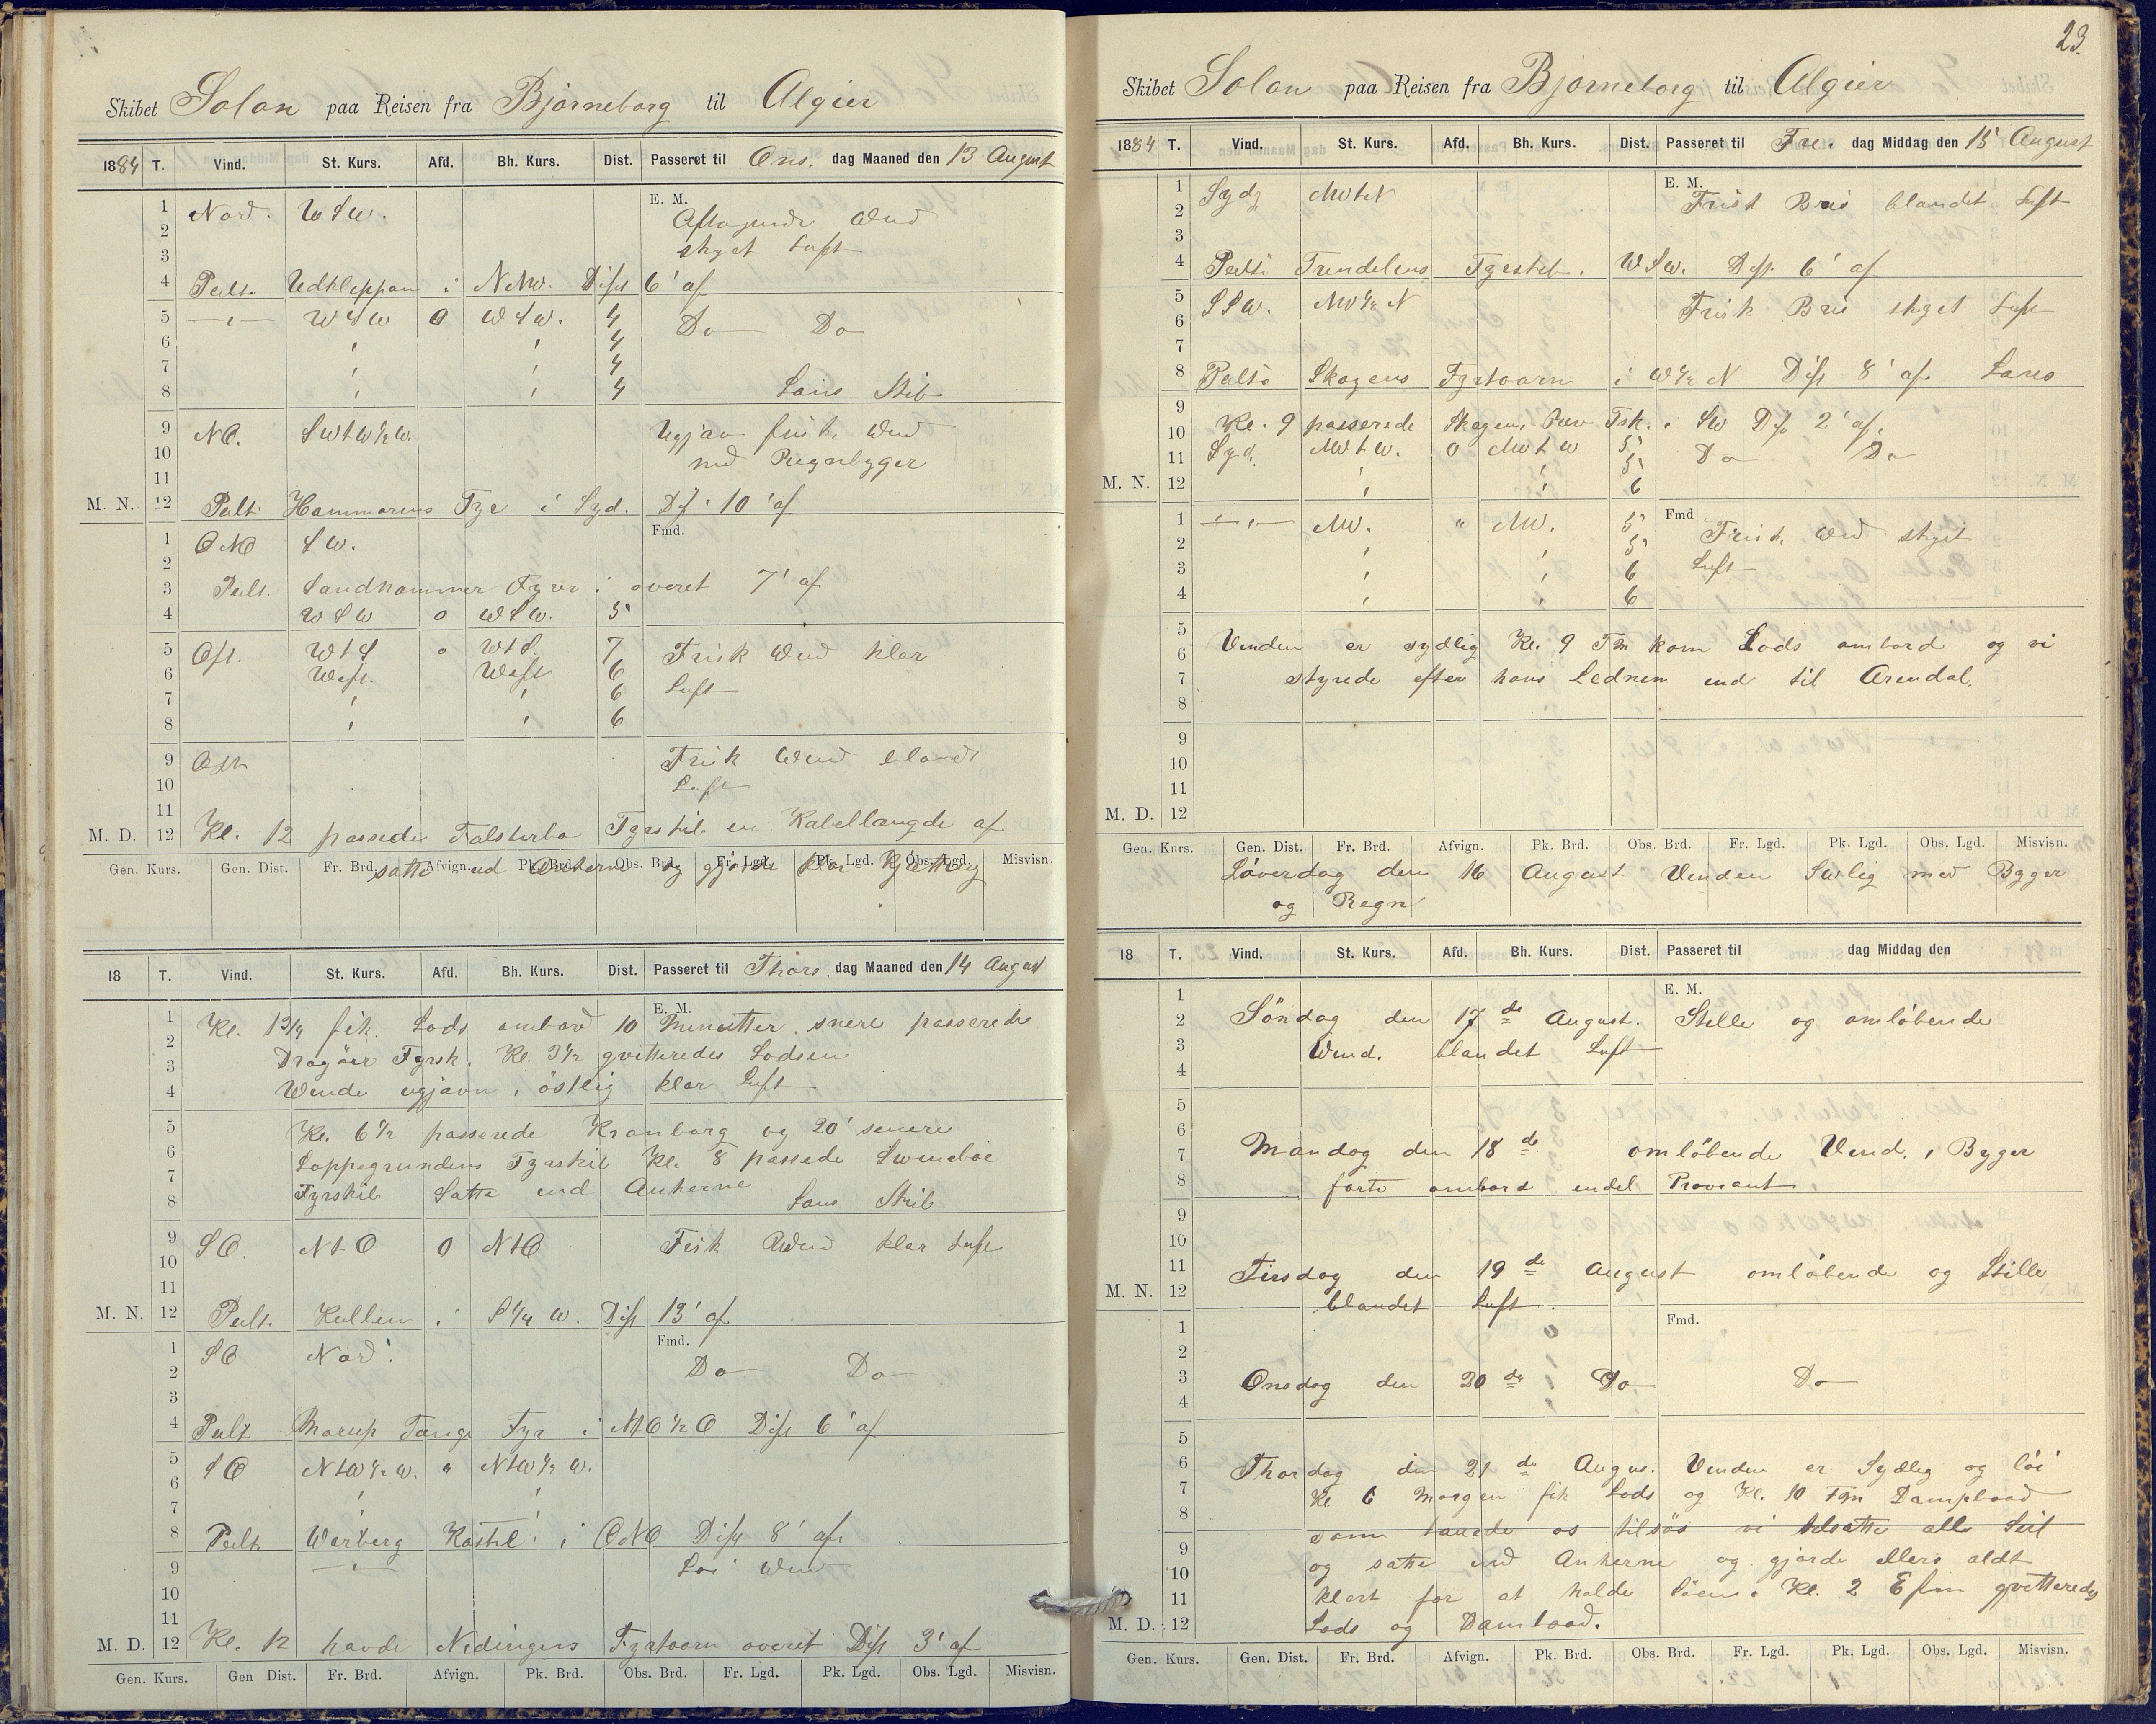 Skibet Solon paa Reisen fra Bjørneborg til Algier
1884 T. Vind. St. Kurs. Afd. Bh. Kurs. Dist. Passeret til Ons. dag Maaned den 13 August
E. M.
1 Nord. WSW. Aftagende Wind
2 skyet Luft
3
4 Peilt. Udkleppan i NNW. Dist 6' af
5 WSW 0 WSW. 4 Do Do
6 4
7 4
8 4 Lans Skib
9 NO. SWtW½W. Ugjævn frisk Wind
10 med Regnbyger
11
M. N. 12 Peilt. Hammarens Fyr i Syd. Dist 10' af
Fmd.
1 ONO SW.
2
3 Peilt. Sandhammer Fyrer i overet 7' af
4 WSW 0 WSW. 5
5 Ost. WtS 0 WtS. 7 Frisk Wind klar
6 West. West 6 Luft
7 6
8 6
9 Ost Frisk Wind blandt
10 Luft
11
M. D. 12 Kl. 12 passede Falsterbo Fyrskib en Kabellængde af
Gen. Kurs. Gen. Dist. Fr. Brd. Afvign. Pk. Brd. Obs. Brd. Fr. Lgd. Pk. Lgd. Obs. Lgd. Misvisn.
satte ud Ankerne og gjorde klar Kjætting
18 T. Vind. St. Kurs. Afd. Bh. Kurs. Dist. Passeret til Thors. dag Maaned den 14 August
E. M.
1 Kl. 1¾ fik Lods ombord 10 Minutter snere passerede
2
3 Dragöer Fyrsk. Kl. 3½ qvitteredes Lodsen
4 Winde ugjævn, östlig klar Luft
5 Kl. 6½ passerede Kronborg og 20' senere
6 Lappegrundens Fyrskib Kl. 8 passede Swineboe
7 Fyrskib Satte ind Ankerne
8 Lans Skib
9 SO. NtO 0 NtO Frisk Wind klar Luft
10
11
M. N. 12 Peilt. Kullen i S¼W. Dist 13' af
Fmd.
1 SO Nord.
2 Do Do
3
4 Peilt Morup Tange Fyr i NO½O Dist 6' af
5 SO NtW½W. " NtW½W.
6
7
8 Peilt. Warberg Kastel i ONO Dist 8' af
9 Løi Wind
10
11
M. D. 12 Kl. 12 havde Nidingens Fyrtaarn overet Dist 3' af
Gen. Kurs. Gen Dist. Fr. Brd. Afvign. Pk. Brd. Obs. Brd. Fr. Lgd. Pk. Lgd. Obs. Lgd. Misvisn.
23.
Skibet Solon paa Reisen fra Bjørneborg til Algier
1884 T. Vind. St. Kurs. Afd. Bh. Kurs. Dist. Passeret til Fre. dag Middag den 15 August
E. M.
1 Sydg NWtN Frisk Bris blandet Luft
2
3
4 Peilte Trindelens Fyrskib. WSW. Dist 6' af
5 SSW. NW½N Frisk Bris skyet Luft
6
7
8 Peilte Skagens Fyrtaarn i W½N Dist 8' af Lans
9 Kl. 9 passerede Skagens Rev Fsk. i SW Dist 2' af.
10 Syd. NWtW. 0 NWtW 5 Do Do
11 5
M. N. 12 6
Fmd
1 NW. " NW. 5 Frisk Wind skyet
2 5 Luft
3 6
4 6
5 Vinden er sydlig Kl. 9 Fm kom Lods ombord og vi
6
7 styrede efter hans Lednin ind til Arendal.
8
9
10
11
M. D. 12
Gen. Kurs. Gen. Dist. Fr. Brd. Afvign. Pk. Brd. Obs. Brd. Fr. Lgd. Pk. Lgd. Obs. Lgd. Misvisn.
Løverdag den 16 August Vinden SWlig med Byger
og Regn
18 T. Vind. St. Kurs. Afd. Bh. Kurs. Dist. Passeret til dag Middag den
E. M.
1
2 Söndag den 17de August. Stille og omløbende
3 Wind. blandet Luft
4
5
6
7 Mandag den 18de omløbende Vind, i Byger
8 førte ombord endel Proviant
9
10
11 Tirsdag den 19de August omløbende og Stille
M. N. 12 blandet Luft.
Fmd.
1
2
3 Onsdag den 20de Do Do
4
5
6 Thordag den 21de Augus. Vinden er Sydlig og löi
7 Kl 6 Morgen fik Lods og Kl. 10 Fm Dampbaad
8 som bauede os tilsøs vi tilsatte alle Seil
9 og satte ind Ankerne og gjorde ellers aldt
10
11 klart for at holde Söen. Kl. 2 Efm qvitteredes
M. D. 12 Lods og Dambaad.
Gen. Kurs. Gen. Dist. Fr. Brd. Afvign. Pk. Brd. Obs. Brd. Fr. Lgd. Pk. Lgd. Obs. Lgd. Misvisn.